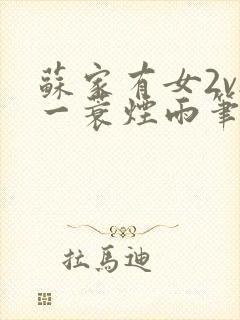 蘇家有女2v
一蓑煙雨筆
拉馬迪